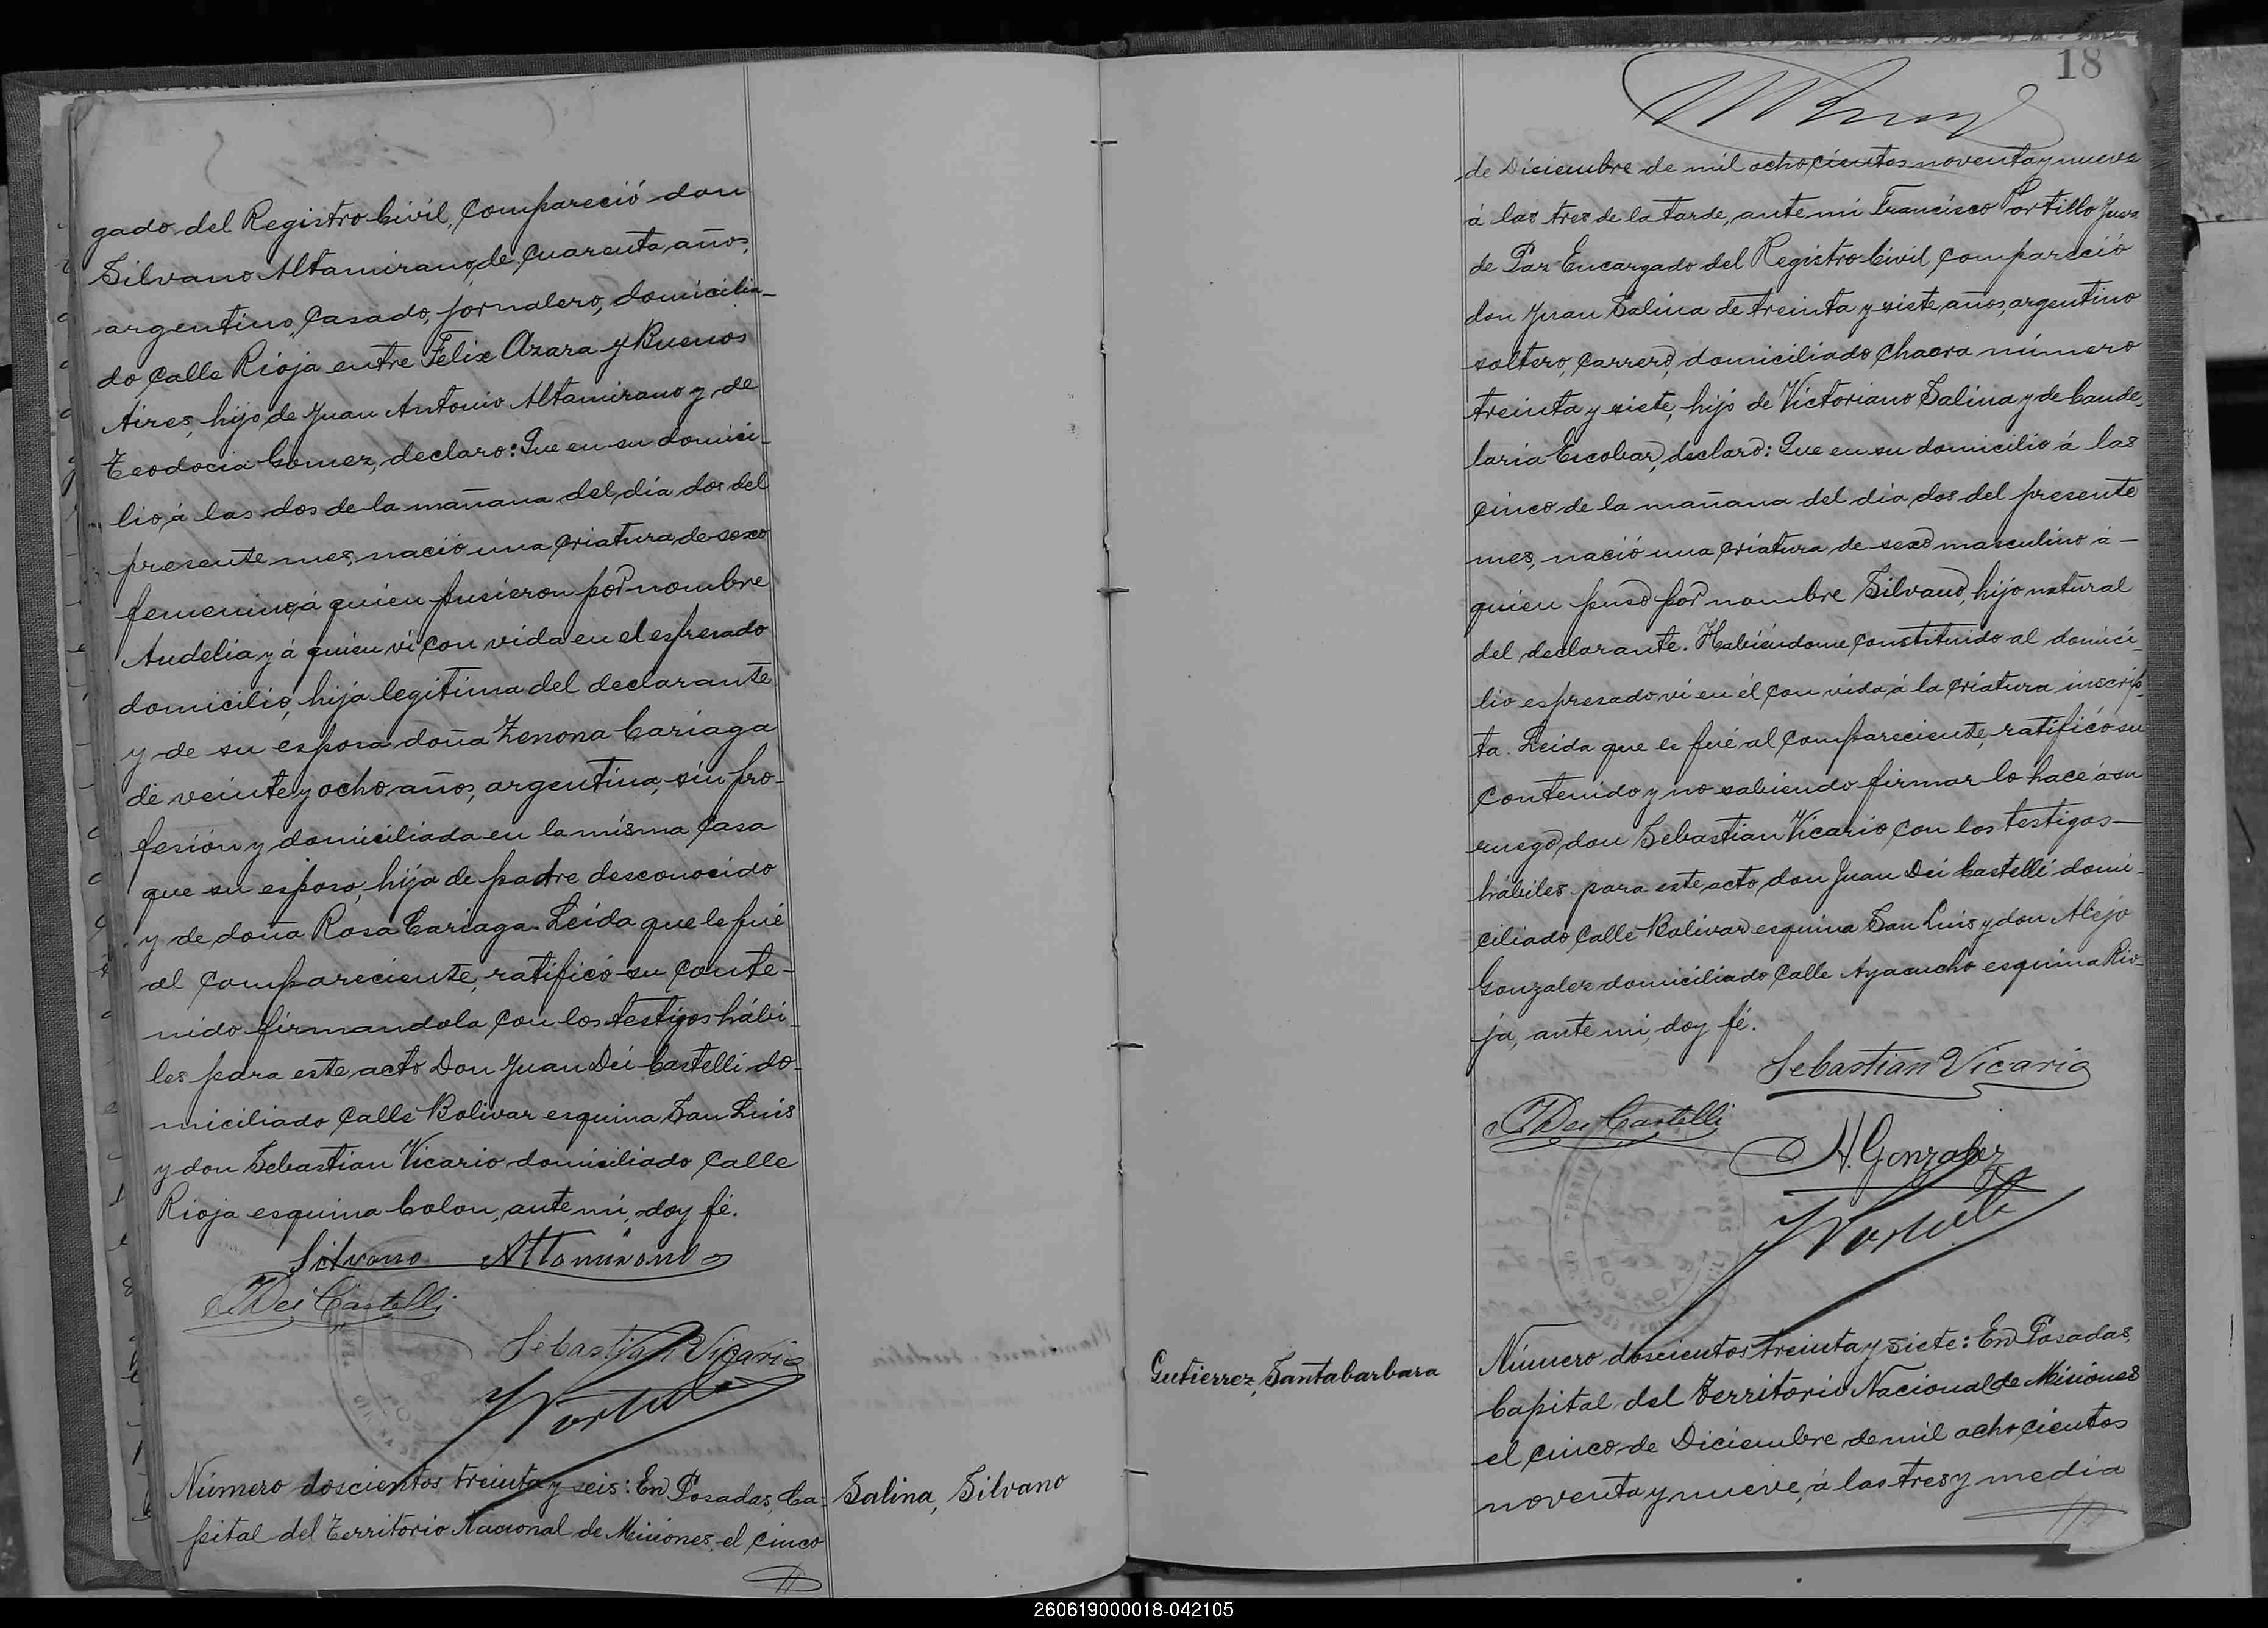 gado del Registro Civil, compareció don
Silvano Altamirano, de cuarenta años,
argentino, casado, jornalero, domicilia-
do calle Rioja entre Felix Azara y Buenos
Aires, hijo de Juan Antonio Altamirano y de
Teodocia Gomez, declaro: Que en su domici-
lio, á las dos de la mañana del dia dos del
presente mes, nació una criatura de sexo
femenino, á quien pusieron por nombre
Audelia y á quien vi con vida en el espresado
domicilio, hija legitima del declarante
y de su esposa doña Zenona Cariaga
de veinte y ocho años, argentina, sin pro-
fesión y domiciliada en la misma casa
que su esposo, hija de padre desconocido
y de doña Rosa Cariaga. Leida que le fué
al compareciente, ratificó su conte-
nido firmandola con los testigos hábi-
les para este acto Don Juan Dei Castelli do-
miciliado calle Bolivar esquina San Luis
y don Sebastian Vicario domiciliado calle
Rioja esquina Colon, ante mi, doy fé.
Silvano Altamirano
J Dei Castelli
Sebastian Vicario
Número doscientos treinta y seis: En Posadas, Ca-
pital del Territorio Nacional de Misiones, el cinco
Salina, Silvano
18
de Diciembre de mil ochocientos noventa y nueve
á las tres de la tarde, ante mi Francisco Portillo Juez
de Paz Encargado del Registro Civil, compareció
don Juan Salina de treinta y siete años, argentino
soltero, carrero, domiciliado chacra número
treinta y siete, hijo de Victoriano Salina y de Cande-
laria Escobar, declaro: Que en su domicilio á las
cinco de la mañana del dia dos del presente
mes, nació una criatura de sexo masculino á
quien puso por nombre Silvano, hijo natural
del declarante. Habiéndome constituido al domici-
lio espresado vi en él con vida, á la criatura inscrip-
ta. Leida que le fué al compareciente, ratificó su
contenido y no sabiendo firmar lo hace á su
ruego don Sebastian Vicario con los testigos
hábiles para este acto, don Juan Dei Castelli domi-
ciliado calle Bolivar esquina San Luis y don Alejo
Gonzalez domiciliado calle Ayacucho esquina Rio-
ja, ante mi, doy fé.
Sebastian Vicario
J Dei Castelli
A. Gonzalez
Gutierrez, Santabarbara
Número doscientos treinta y siete: En Posadas,
Capital del Territorio Nacional de Misiones
el cinco de Diciembre de mil ochocientos
noventa y nueve, á las tres y media
260619000018-042105